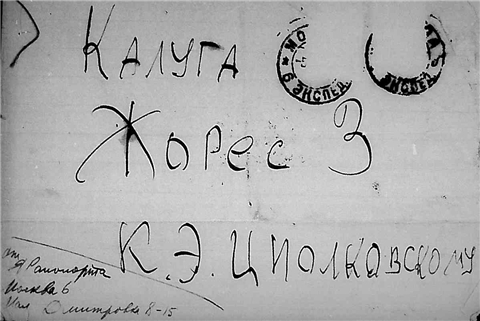 Калуга
Жорес 3
К.Э. Циолковскому
от
Рапопорта
Москва 6
Мал Дмитровка 8-15
6 ЭКСПЕД
ЭКСПЕД